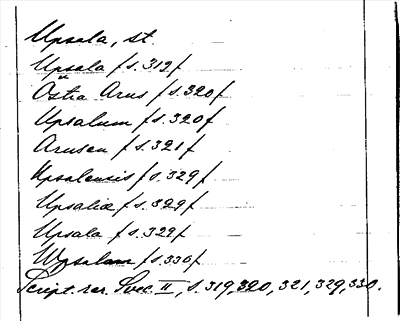 Upsala, st.
Upsala / s. 319 /
Östra Arus / s. 320 /
Upsalum / s. 320 /
Arusen / s. 321 /
Upsalensis / s. 329 /
Upsaliæ / s. 329 /
Upsala / s. 329 /
Wpsalam / s. 330 /
Script. rer. Svec. II, s. 319, 320, 321, 329, 330.